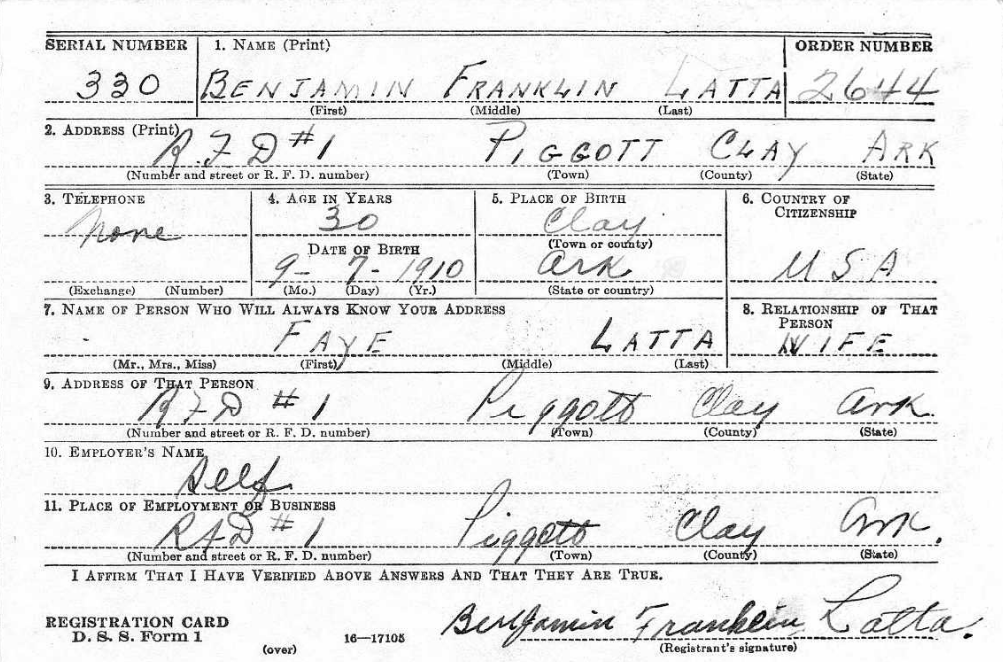 SERIAL NUMBER 1. NAME (Print) ORDER NUMBER
330 BENJAMIN FRANKLIN LATTA 2644
(First) (Middle) (Last)
2. ADDRESS (Print)
R.F D #1 PIGGOTT CLAY ARK
(Number and street or R. F. D. number) (Town) (County) (State)
3. TELEPHONE 4. AGE IN YEARS 5. PLACE OF BIRTH 6. COUNTRY OF CITIZENSHIP
None 30 Clay
DATE OF BIRTH (Town or county)
9- 7- 1910 Ark USA
(Exchange) (Number) (Mo.) (Day) (Yr.) (State or country)
7. NAME OF PERSON WHO WILL ALWAYS KNOW YOUR ADDRESS 8. RELATIONSHIP OF THAT PERSON
FAYE LATTA WIFE
(Mr., Mrs., Miss) (First) (Middle) (Last)
9. ADDRESS OF THAT PERSON
RFD #1 Piggott Clay Ark.
(Number and street or R. F. D. number) (Town) (County) (State)
10. EMPLOYER'S NAME
Self
11. PLACE OF EMPLOYMENT OR BUSINESS
RFD #1 Piggott Clay Ark.
(Number and street or R. F. D. number) (Town) (County) (State)
I AFFIRM THAT I HAVE VERIFIED ABOVE ANSWERS AND THAT THEY ARE TRUE.
REGISTRATION CARD Benjamin Franklin Latta.
D. S. S. Form 1 16—17105 (Registrant's signature)
(over)